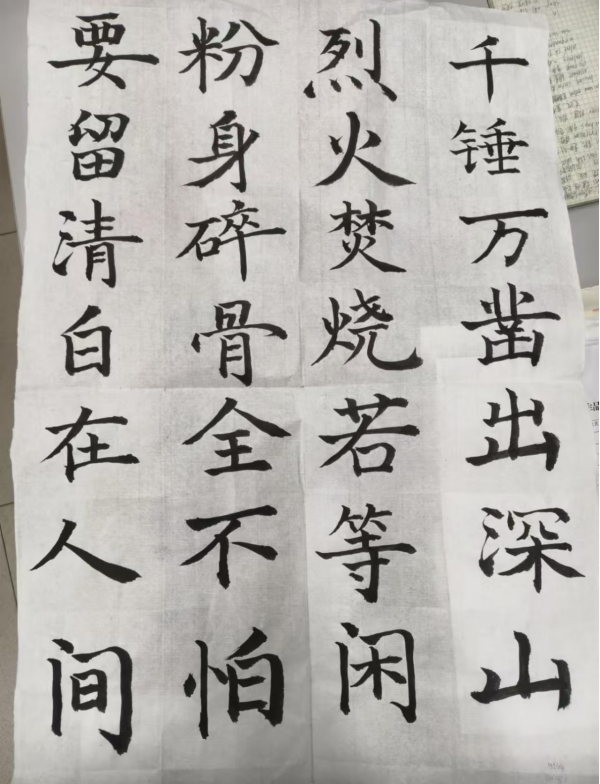 千锤万凿出深山
烈火焚烧若等闲
粉身碎骨全不怕
要留清白在人间